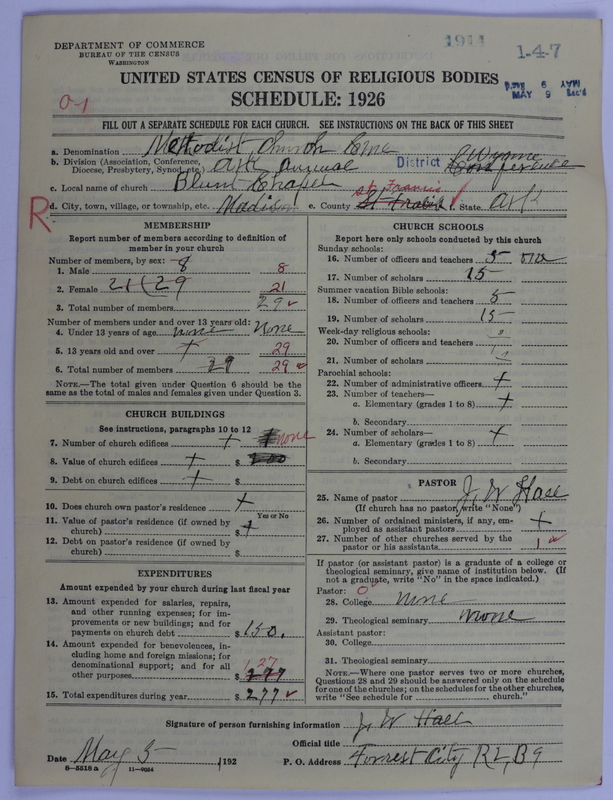 DEPARTMENT OF COMMERCE
BUREAU OF THE CENSUS
WASHINGTON
1944
1-4-7
MAY 9 Rec'd
UNITED STATES CENSUS OF RELIGIOUS BODIES
SCHEDULE: 1926
0-1
FILL OUT A SEPARATE SCHEDULE FOR EACH CHURCH. SEE INSTRUCTIONS ON THE BACK OF THIS SHEET
a. Denomination Methodist Church
b. Division (Association, Conference, Diocese, Presbytery, Synod, etc.) Ark annual District Wynne Conference
c. Local name of church Blunt Chapel
d. City, town, village, or township, etc. Madison e. County St. Francis f. State Ark
R
MEMBERSHIP
Report number of members according to definition of
member in your church
Number of members, by sex: 8
1. Male 8
2. Female 21 (29 21
3. Total number of members 29
Number of members under and over 13 years old:
4. Under 13 years of age none None
5. 13 years old and over + 29
6. Total number of members 29 29
NOTE.—The total given under Question 6 should be the
same as the total of males and females given under Question 3.
CHURCH BUILDINGS
See instructions, paragraphs 10 to 12
7. Number of church edifices + 1 none
8. Value of church edifices + $
9. Debt on church edifices + $
10. Does church own pastor's residence +
Yes or No
11. Value of pastor's residence (if owned by
church) $ +
12. Debt on pastor's residence (if owned by
church) $
EXPENDITURES
Amount expended by your church during last fiscal year
13. Amount expended for salaries, repairs,
and other running expenses; for im-
provements or new buildings; and for
payments on church debt $ 150.
14. Amount expended for benevolences,
including home and foreign missions; for
denominational support; and for all
other purposes $ 277 127
15. Total expenditures during year $ 277
CHURCH SCHOOLS
Report here only schools conducted by this church
Sunday schools:
16. Number of officers and teachers 5 one
17. Number of scholars 15
Summer vacation Bible schools:
18. Number of officers and teachers 5
19. Number of scholars 15
Week-day religious schools:
20. Number of officers and teachers
21. Number of scholars
Parochial schools:
22. Number of administrative officers +
23. Number of teachers—
a. Elementary (grades 1 to 8) +
b. Secondary
24. Number of scholars—
a. Elementary (grades 1 to 8) +
b. Secondary
PASTOR
25. Name of pastor J. W Hall
(If church has no pastor, write "None")
26. Number of ordained ministers, if any, em-
ployed as assistant pastors +
27. Number of other churches served by the
pastor or his assistants 1
If pastor (or assistant pastor) is a graduate of a college or
theological seminary, give name of institution below. (If
not a graduate, write "No" in the space indicated.)
Pastor: 0
28. College none
29. Theological seminary none
Assistant pastor:
30. College
31. Theological seminary
NOTE.—Where one pastor serves two or more churches,
Questions 28 and 29 should be answered only on the schedule
for one of the churches; on the schedules for the other churches,
write "See schedule for church."
Signature of person furnishing information J. W Hall
Official title
Date May 5, 192 P. O. Address Forrest City R2, B9
8-5518a 11-9064